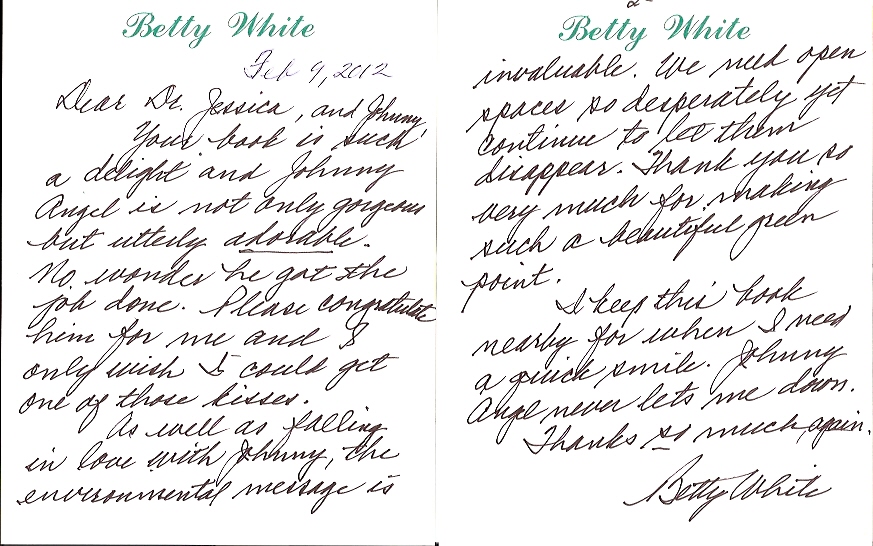 Betty White
Feb 9, 2012
Dear Dr. Jessica, and Johnny,
Your book is such
a delight and Johnny
Angel is not only gorgeous
but utterly adorable.
No wonder he got the
job done. Please congratulate
him for me and I
only wish I could get
one of those kisses.
As well as falling
in love with Johnny, the
environmental message is
2-
Betty White
invaluable. We need open
spaces so desperately yet
continue to let them
disappear. Thank you so
very much for making
such a beautiful green
point.
I keep this book
nearby for when I need
a quick smile. Johnny
Angel never lets me down.
Thanks so much, again.
Betty White